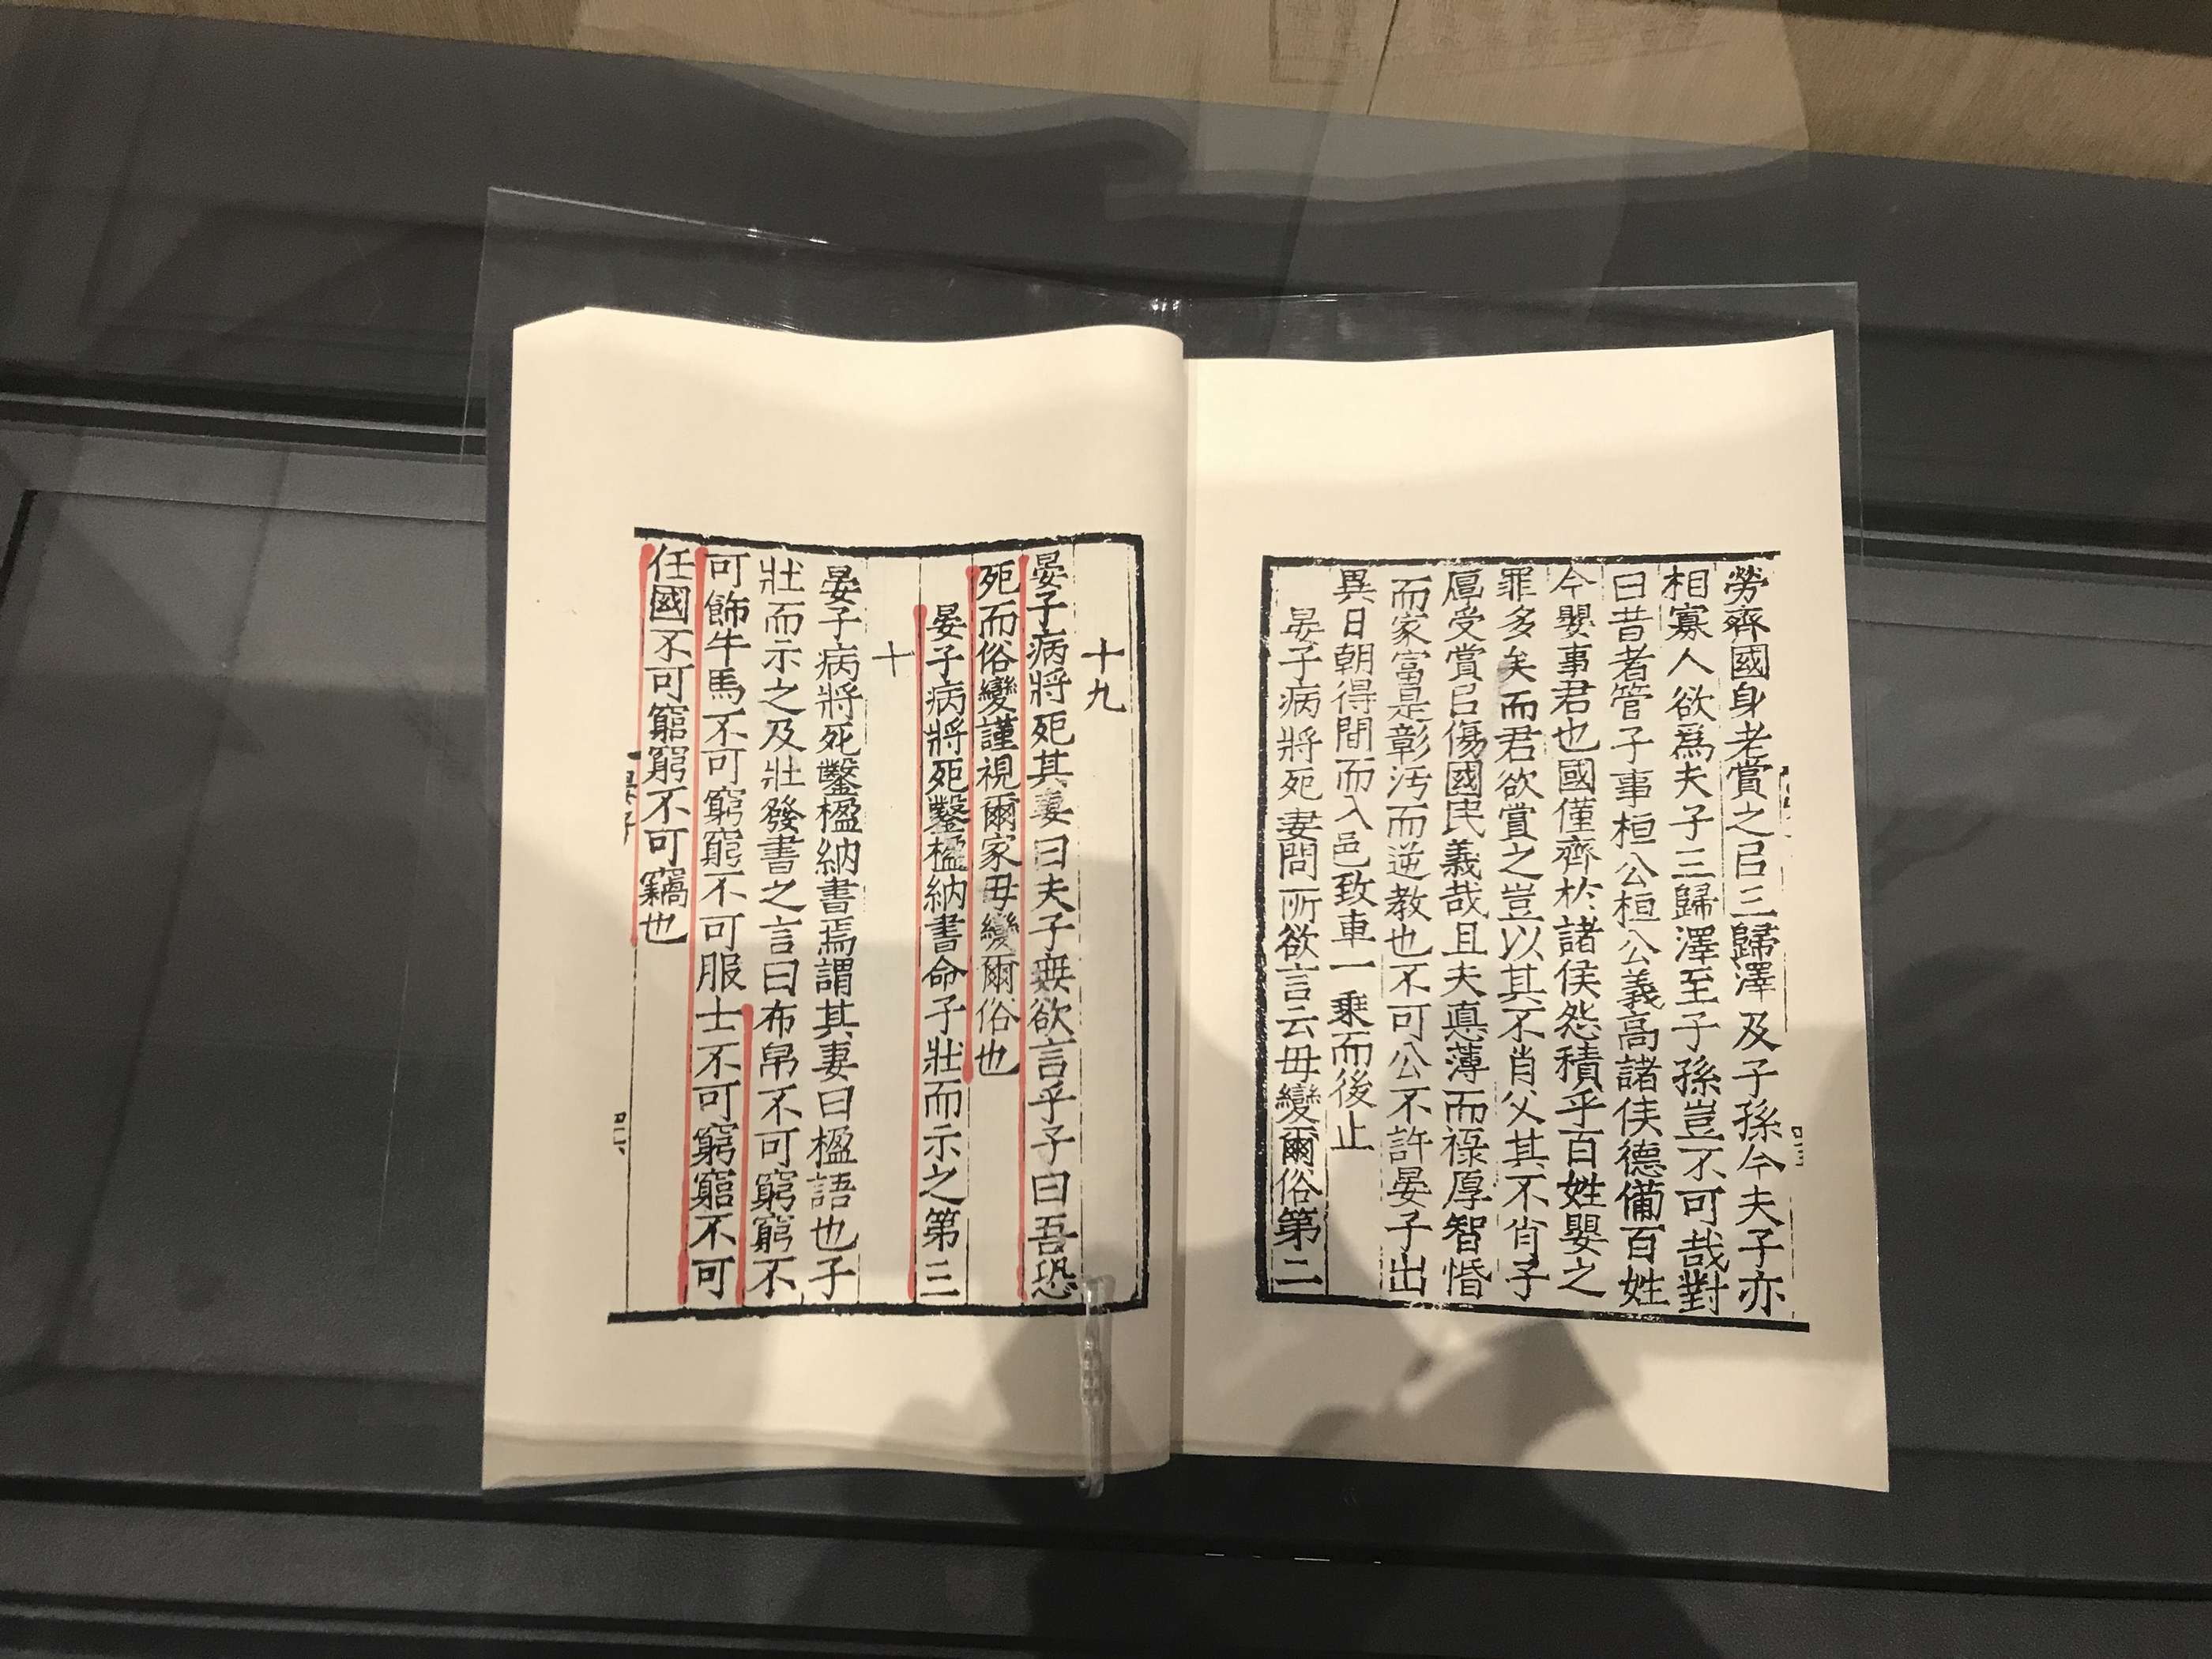 勞齊國身老賞之㠯三歸澤及子孫今夫子亦
相寡人欲爲夫子三歸澤至子孫豈不可哉對
曰昔者管子事桓公桓公義高諸侯德備百姓
今嬰事君也國僅齊於諸侯怨積乎百姓嬰之
罪多矣而君欲賞之豈以其不肖父其不肖子
厚受賞㠯傷國民義哉且夫悳薄而祿厚智惛
而家富是彰汚而逆教也不可公不許晏子出
異日朝得閒而入邑致車一乘而後止
晏子病將死妻問所欲言云毋變爾俗第二
十九
晏子病將死其妻曰夫子無欲言乎子曰吾恐
死而俗變謹視爾家毋變爾俗也
晏子病將死鑿楹納書命子壯而示之第三
十
晏子病將死鑿楹納書焉謂其妻曰楹語也子
壯而示之及壯發書之言曰布帛不可窮窮不
可飾牛馬不可窮窮不可服士不可窮窮不可
任國不可窮窮不可竊也